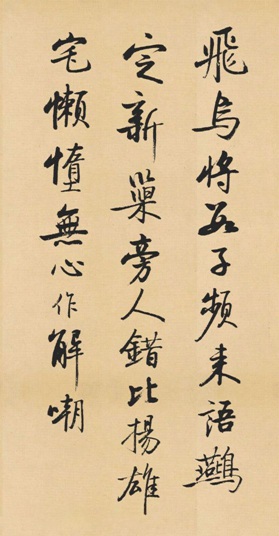 飛烏將數子頻來語鷰
定新巢旁人錯比揚雄
宅懶憧無心作解嘲